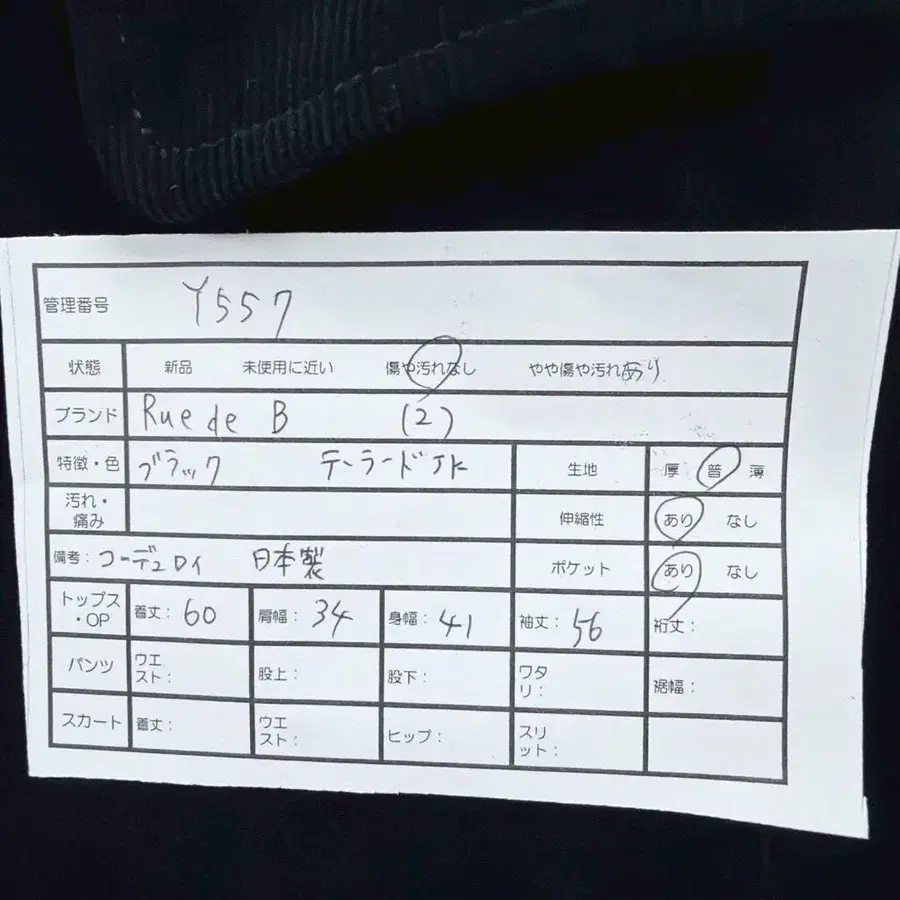 管理番号 Y557
状態 新品 未使用に近い 傷や汚れなし やや傷や汚れあり
ブランド Rue de B (2)
特徴・色 ブラック テーラードJK 生地 厚 普 薄
汚れ・痛み 伸縮性 あり なし
備考: コーデュロイ 日本製 ポケット あり なし
トップス・OP 着丈: 60 肩幅: 34 身幅: 41 袖丈: 56 裄丈:
パンツ ウエスト: 股上: 股下: ワタリ: 裾幅:
スカート 着丈: ウエスト: ヒップ: スリット: